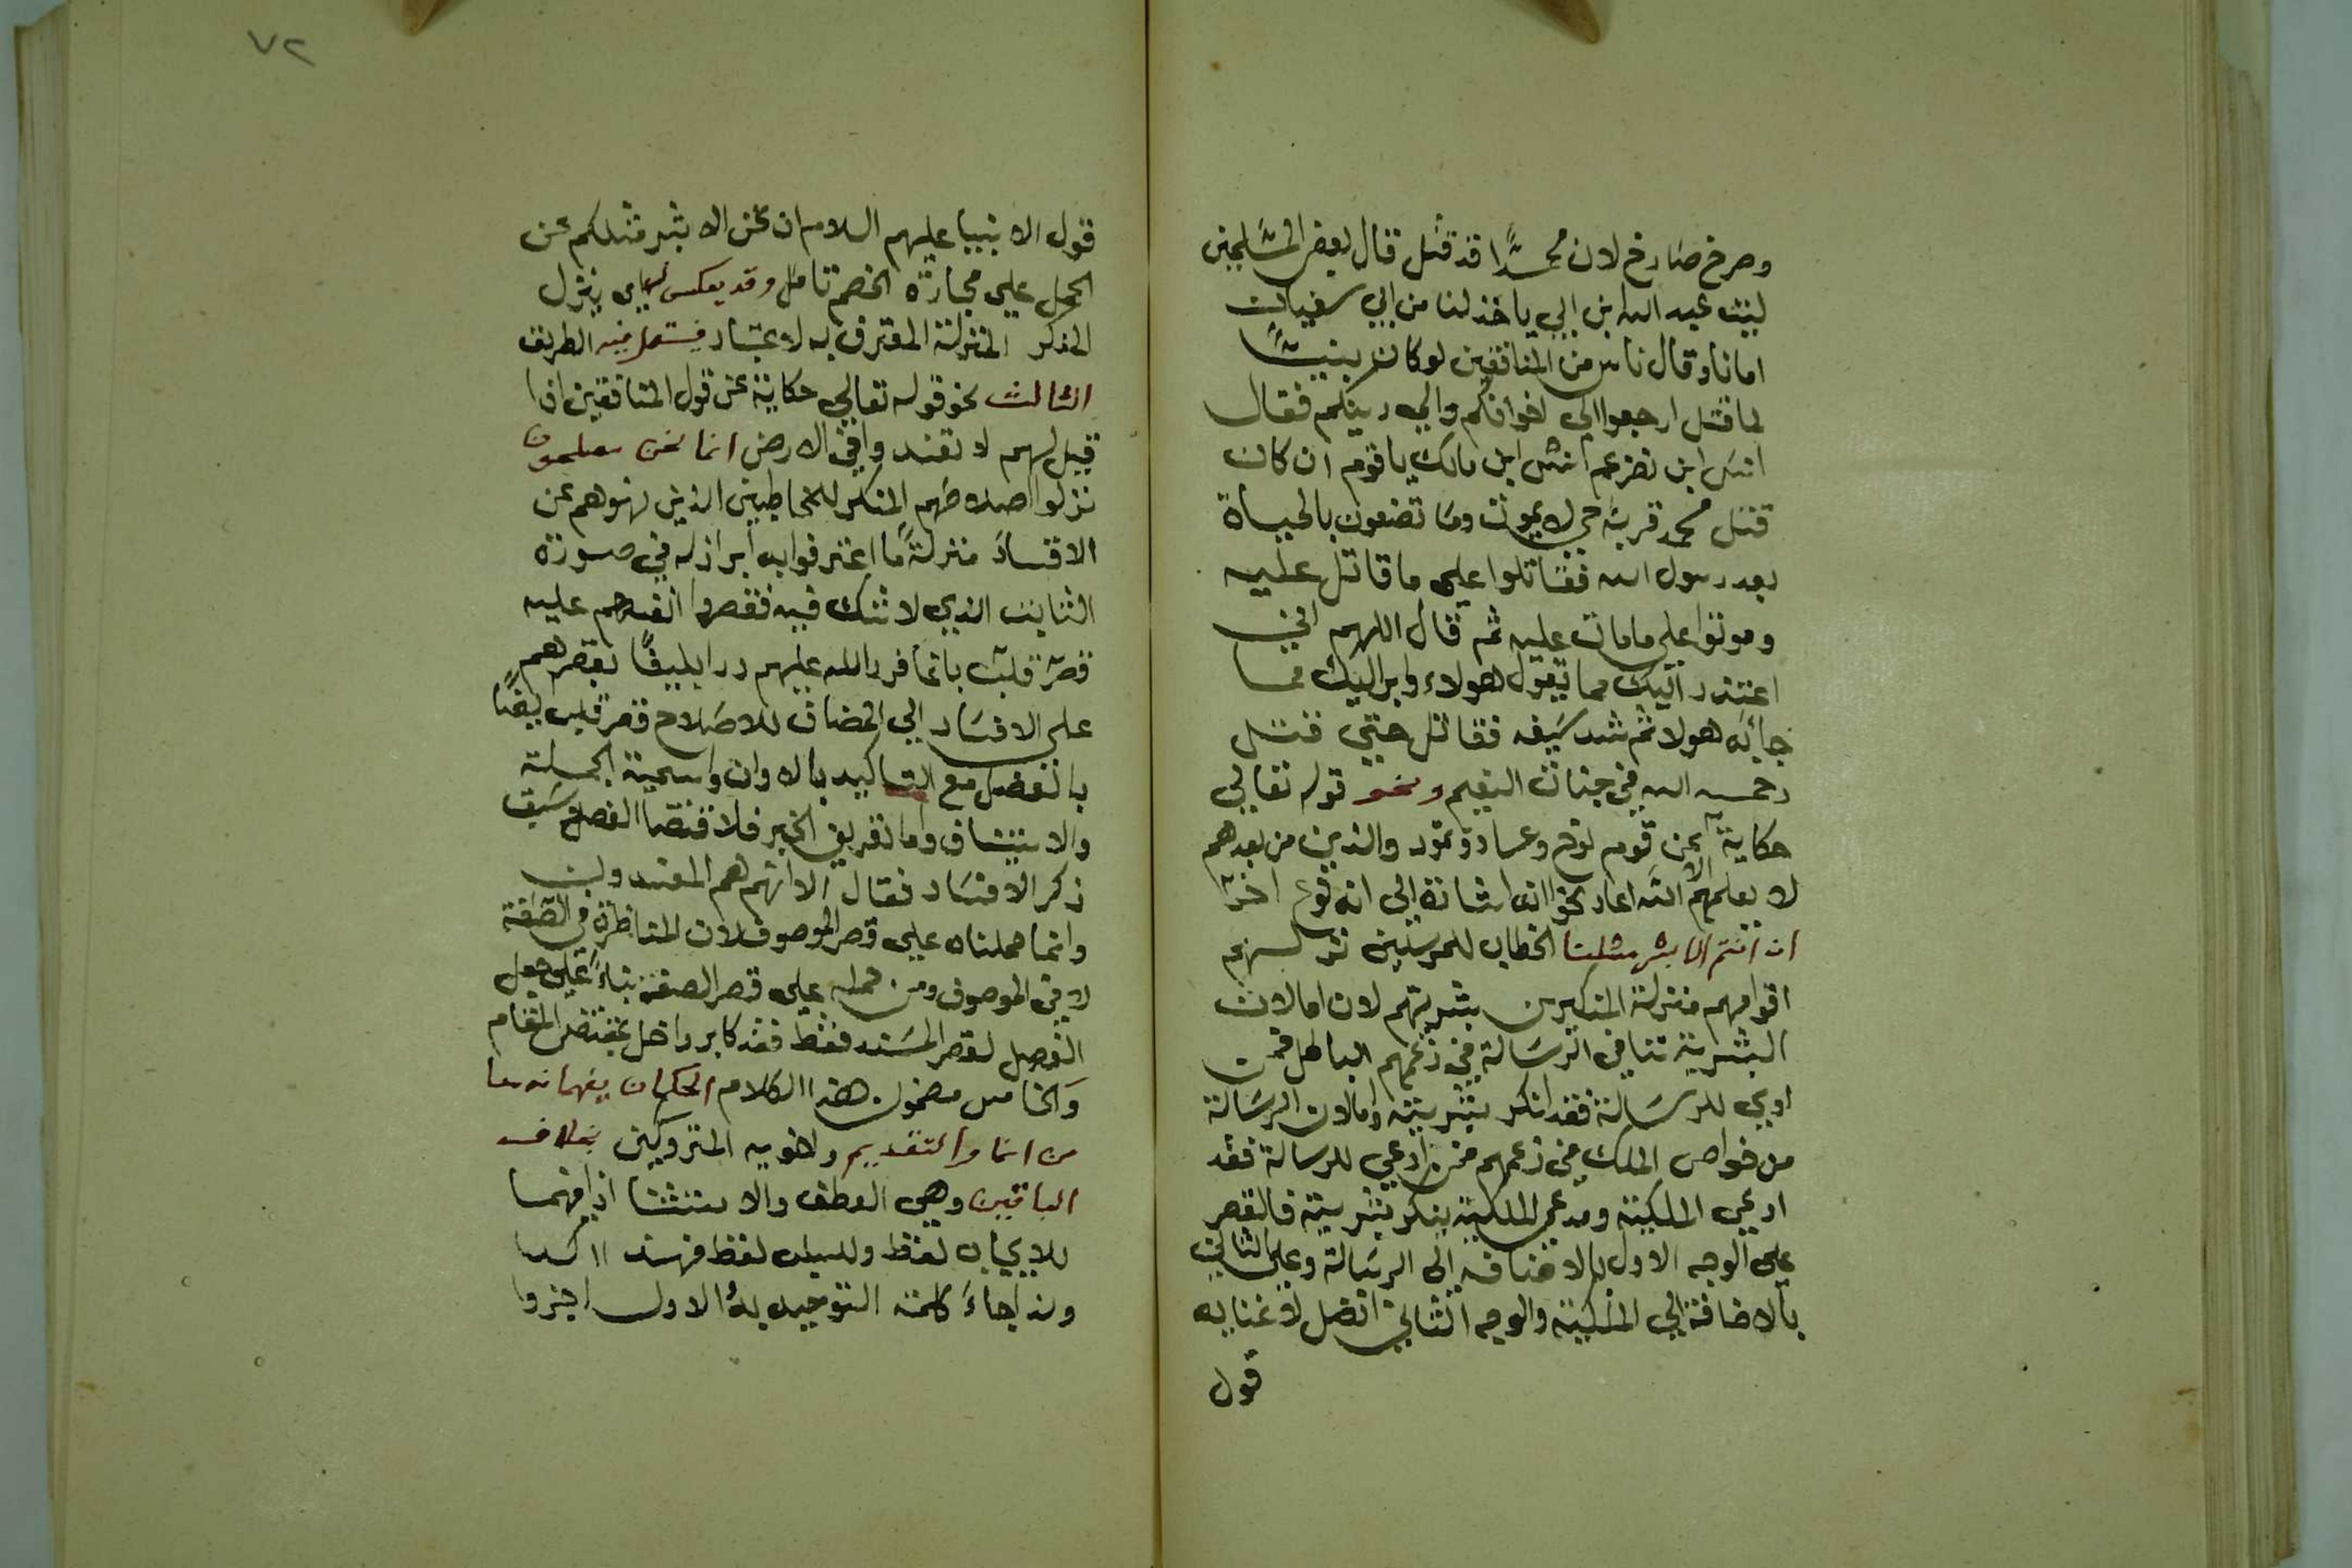 وصرخ صارخ لان محمدًا قد قتل قال بعض المسلمين
ليت عبد الله ابن ابي ياخذ لنا من ابي سفيان
امانا وقال ناس من المنافقين لو كان نبيًا
لما قتل ارجعوا الى اخوانكم والي دينكم فقال
انس ابن نضر عم انس ابن مالك يا قوم ان كان
قتل محمد فربه حي لا يموت وما تصنعون بالحياة
بعد رسول الله فقاتلوا علي ما قاتل عليه
وموتوا علي ما مات عليه ثم قال اللهم اني
اعتذر اليك مما يقول هولاء وابرا اليك مما
جا به هولا ثم شد سيفه فقاتل حتي قتل
رحمه الله في جنات النعيم ونحو قوله تعالي
حكاية عن قوم نوح وعاد وثمود والذين من بعدهم
لا يعلمهم الا الله اعاد نحو اشارة الي انه نوع اخر
ان انتم الا بشر مثلنا الخطاب للمرسلين نزلهم
اقوامهم منزلة المنكرين بشريتهم لان امالان
البشرية تنافي الرسالة في زعمهم الباطل فمن
ادعي للرسالة فقد انكر بشريته وامالان الرسالة
من خواص الملك في زعمهم فمن ادعي للرسالة فقد
ادعي الملكية ومدعي الملكية ينكر بشريته فالقصر
علي الوجه الاول بالاضافة الى الرسالة وعلي الثاني
بالاضافة الي الملكية والوجه الثاني افضل لاغنايه
قول
٧٢
قول الانبيا عليهم السلام ان نحن الا بشر مثلكم عن
الحمل علي مجاراة الخصم تامل وقد يعكس اي ينزل
المنكر المنزلة المعترف به لاعتبار فيستعمل فيه الطريف
الثالث نحو قوله تعالي حكاية عن قول المنافقين اذا
قيل لهم لا تفسدوا في الارض انما نحن مصلحون
نزلوا اصلاحهم المنكر للمخاطبين الذين نهوهم عن
الافساد منزلة ما اعترفوا به ابراز له في صورة
الثابت الذي لا شك فيه فقصروا انفسهم عليه
قصر قلب بانما فرد الله عليهم ردا بليغًا بقصرهم
علي الافساد الي المضاف للاصلاح قصر قلب بليغًا
بالفصل مع التاكيد بالا وان واسمية الجملة
والاستيناف واما تعريف الخبر فلاقتضا الفصل سبق
ذكر الافساد فقال الا انهم هم المفسدون
وانما حملناه علي قصر الموصوف لان المناظرة في الصفة
لا في الموصوف ومن حمله علي قصر الصفة بناءً علي جعل
الفصل لقصر المسند فقط فقد كابر واخل بمقتضي المقام
والخامس مضمون هذا الكلام الحكمان يفهمانه معا
من انما والتقديم واخويه المتروكين بخلاف
الباقين وهي العطف والاستثنا اذ يفهما
للايجاب لفظ وللسلب لفظ
ولذا جاء كلمة التوحيد الاول